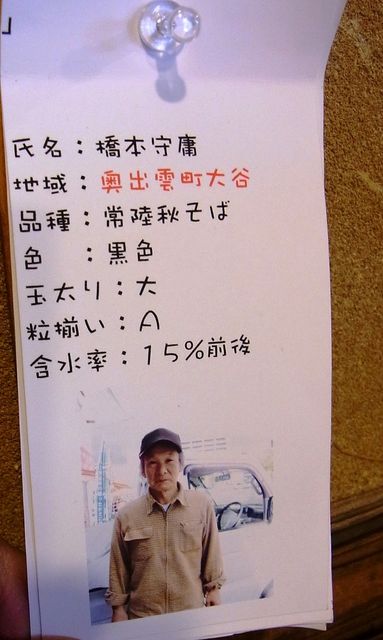 」
氏名：橋本守庸
地域：奥出雲町大谷
品種：常陸秋そば
色　：黒色
玉太り：大
粒揃い：A
含水率：15%前後